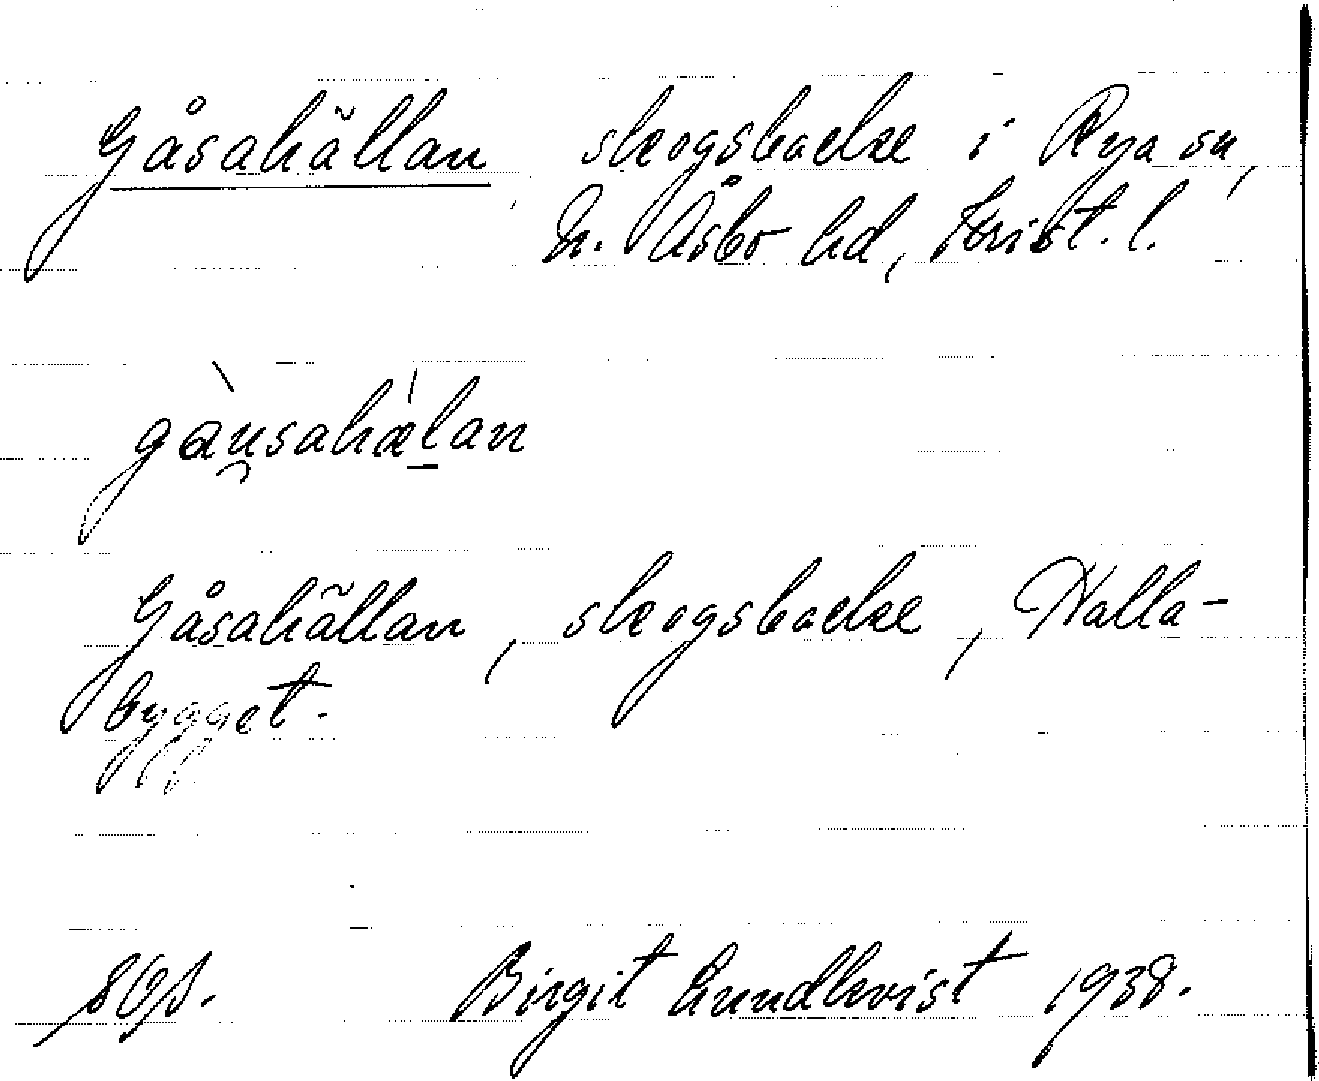 Gåsahällan, skogsbacke i Rya sn,
N. Åsbo hd, Krist. l.
gàu̯sahæ̀lan
Gåsahällan, skogsbacke, Halla-
bygget.
Birgit Lundkvist 1938.